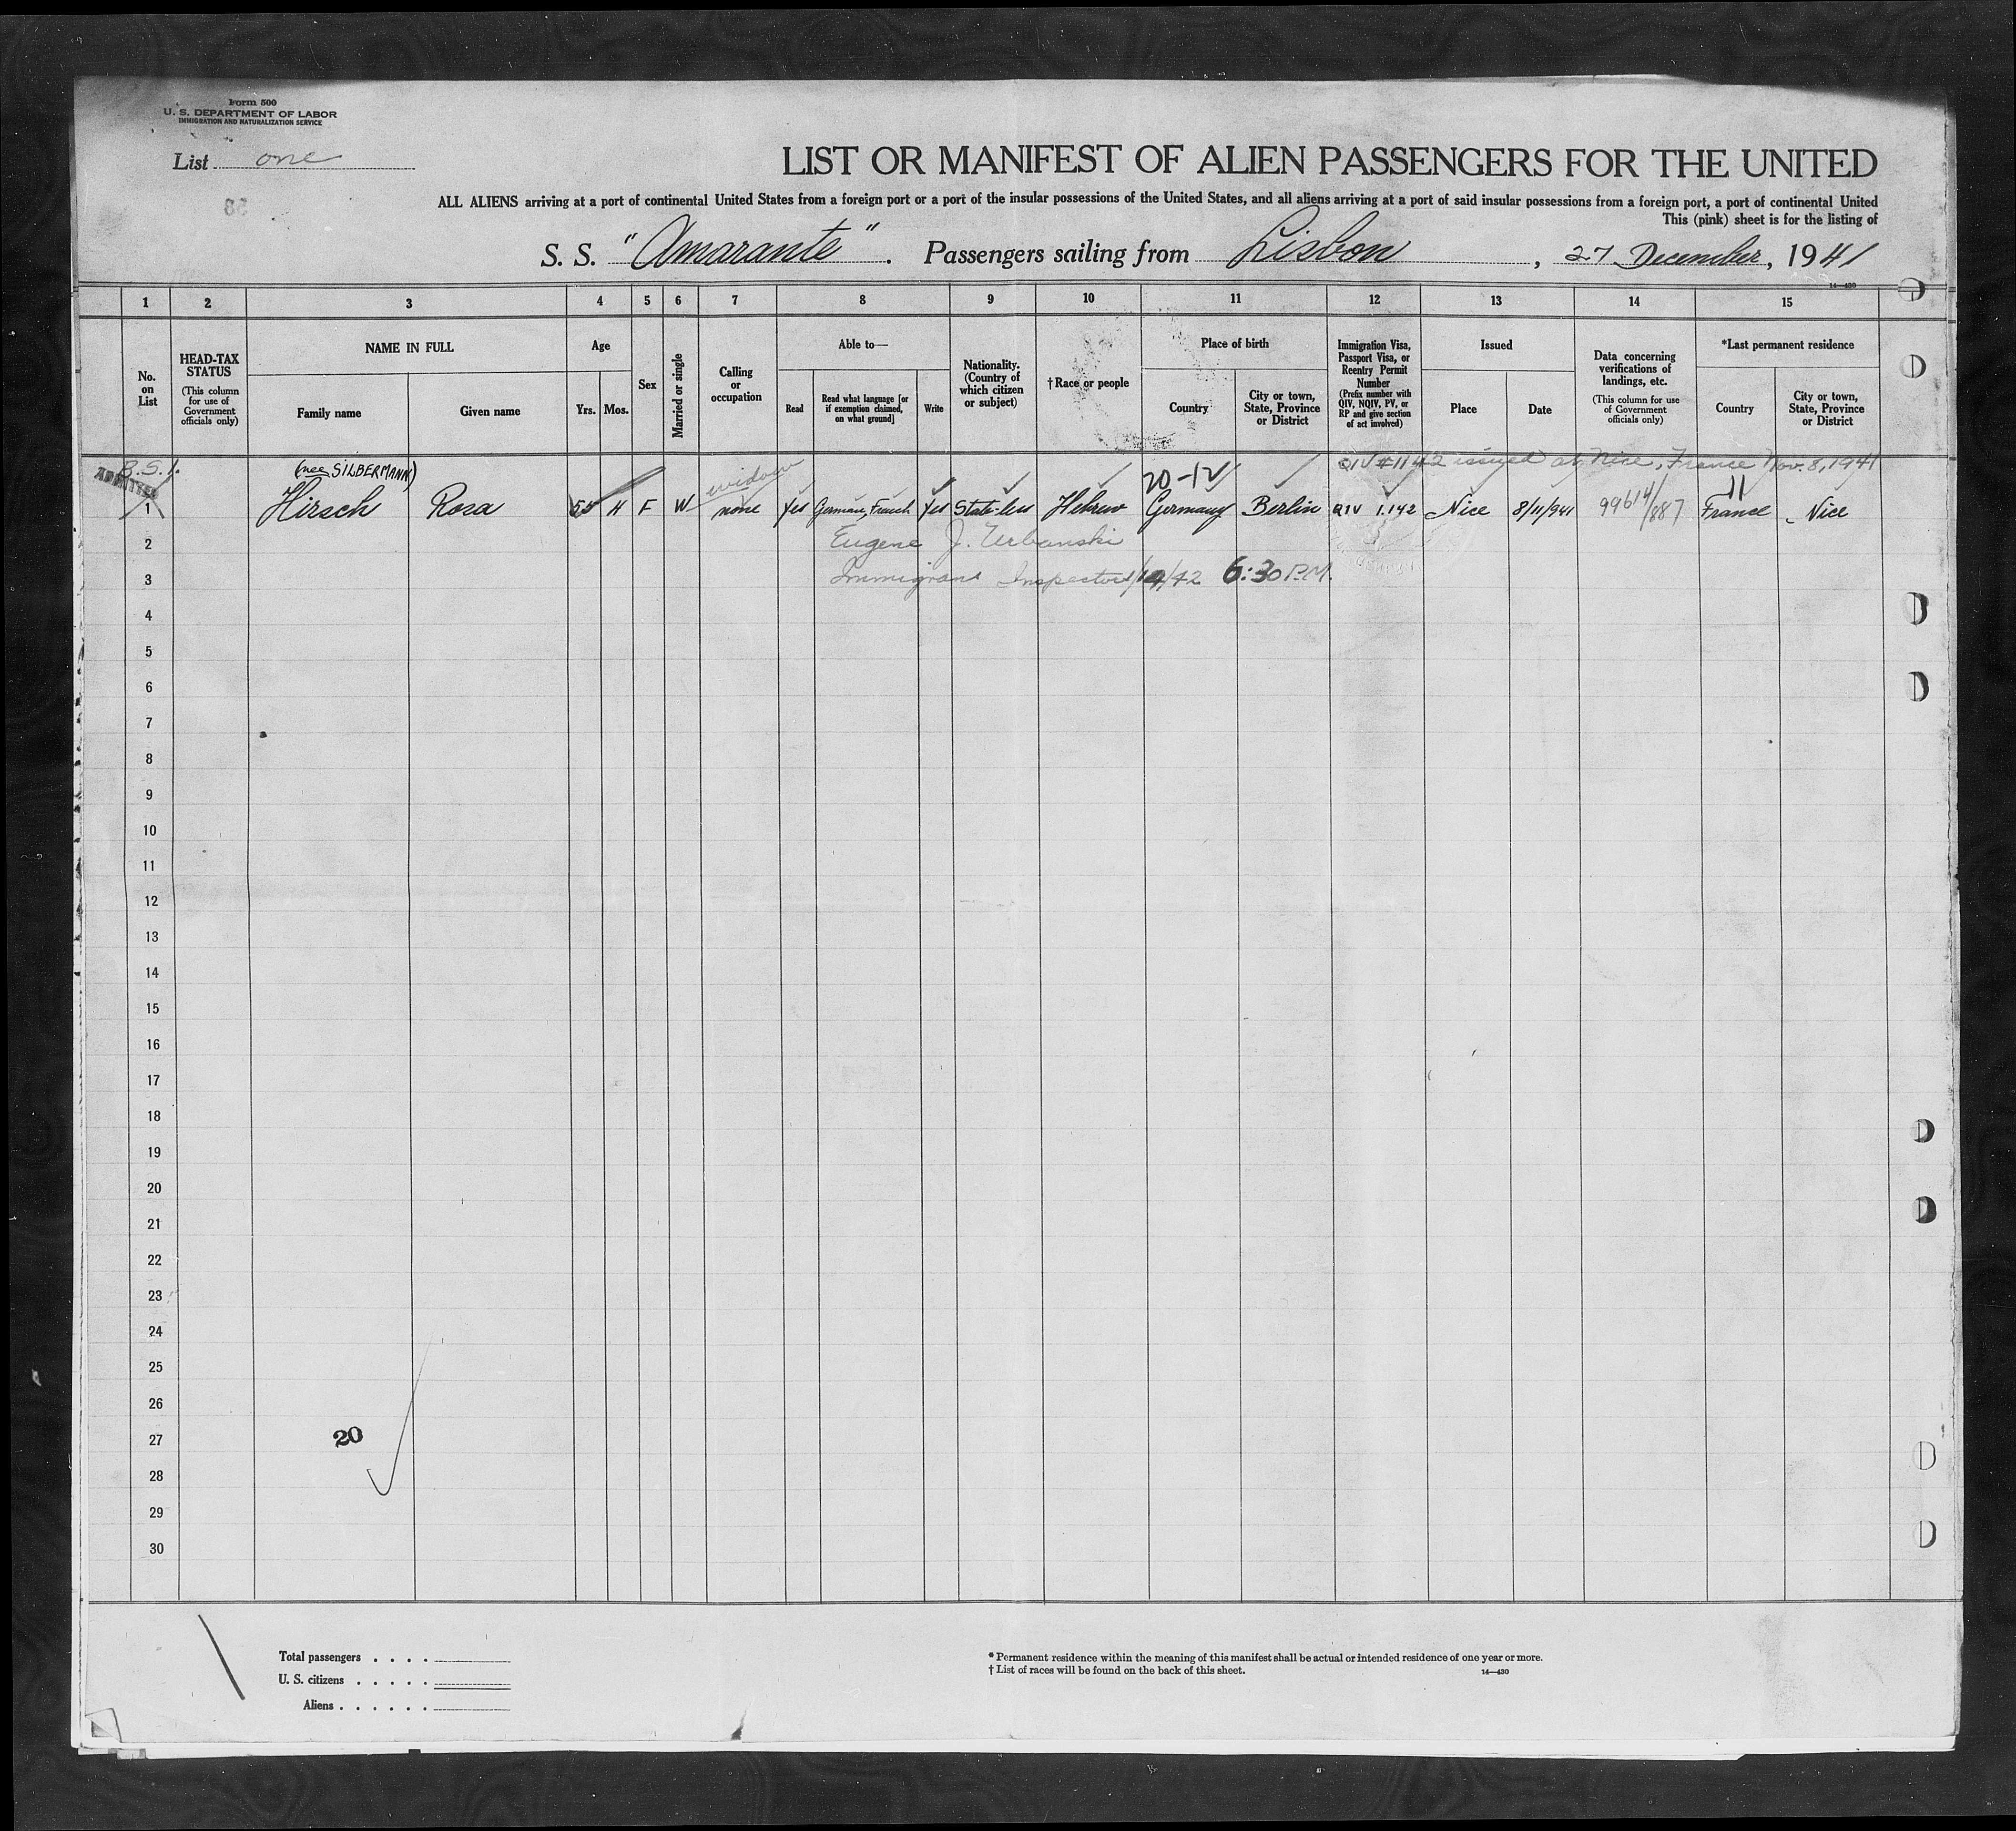 Form 500
U. S. DEPARTMENT OF LABOR
IMMIGRATION AND NATURALIZATION SERVICE
List one
LIST OR MANIFEST OF ALIEN PASSENGERS FOR THE UNITED
ALL ALIENS arriving at a port of continental United States from a foreign port or a port of the insular possessions of the United States, and all aliens arriving at a port of said insular possessions from a foreign port, a port of continental United
This (pink) sheet is for the listing of
S. S. "Amarante". Passengers sailing from Lisbon, 27 December, 1941
14—430
1 2 3 4 5 6 7 8 9 10 11 12 13 14 15
No. on List
HEAD-TAX STATUS (This column for use of Government officials only)
NAME IN FULL
Family name
Given name
Age
Yrs. Mos.
Sex
Married or single
Calling or occupation
Able to—
Read
Read what language [or if exemption claimed, on what ground]
Write
Nationality. (Country of which citizen or subject)
†Race or people
Place of birth
Country
City or town, State, Province or District
Immigration Visa, Passport Visa, or Reentry Permit Number (Prefix number with QIV, NQIV, PV, or RP and give section of act involved)
Issued
Place
Date
Data concerning verifications of landings, etc. (This column for use of Government officials only)
*Last permanent residence
Country
City or town, State, Province or District
B.S.I. (nee SILBERMANN) widow 20-12 QIV #1142 issued at Nice, France Nov. 8, 1941
ADMITTED
1 Hirsch Rosa 55 H F W none Yes German, French Yes State-less Hebrew Germany Berlin QIV 1.142 Nice 8/11/941 99614/887 France Nice
2 Eugene J. Urbanski
3 Immigrant Inspector 1/14/42 6:30 P.M.
4
5
6
7
8
9
10
11
12
13
14
15
16
17
18
19
20
21
22
23
24
25
26
27
20
28
29
30
Total passengers . . . .
U. S. citizens . . . . .
Aliens . . . . . .
* Permanent residence within the meaning of this manifest shall be actual or intended residence of one year or more.
† List of races will be found on the back of this sheet.
14—430